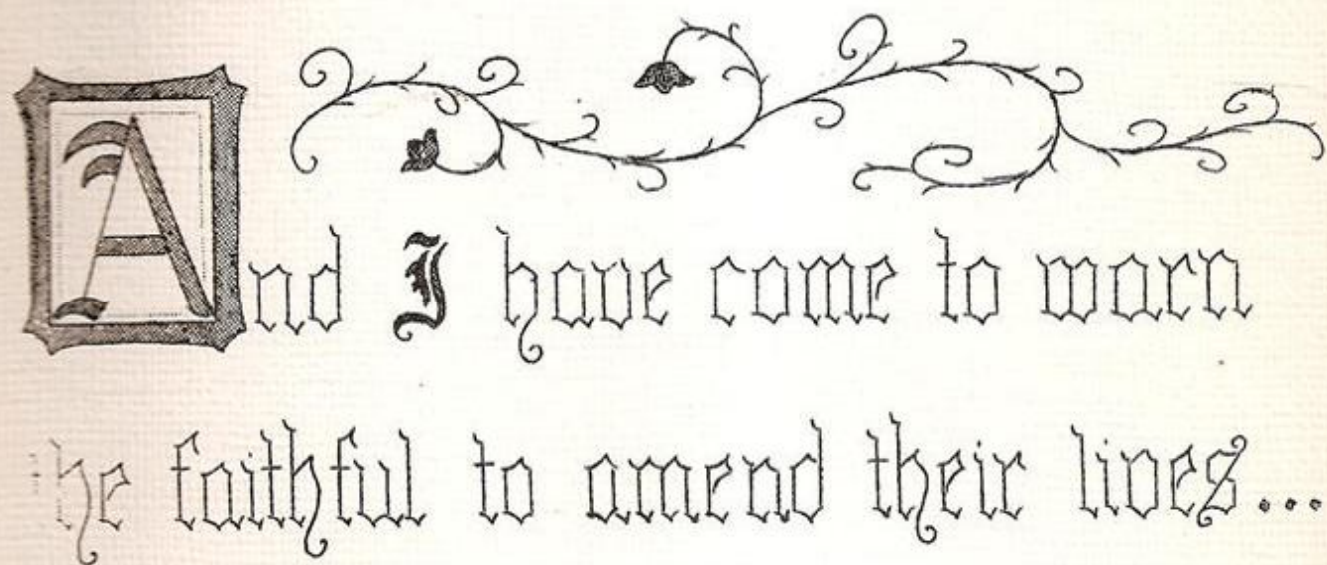 And I have come to warn
the faithful to amend their lives...